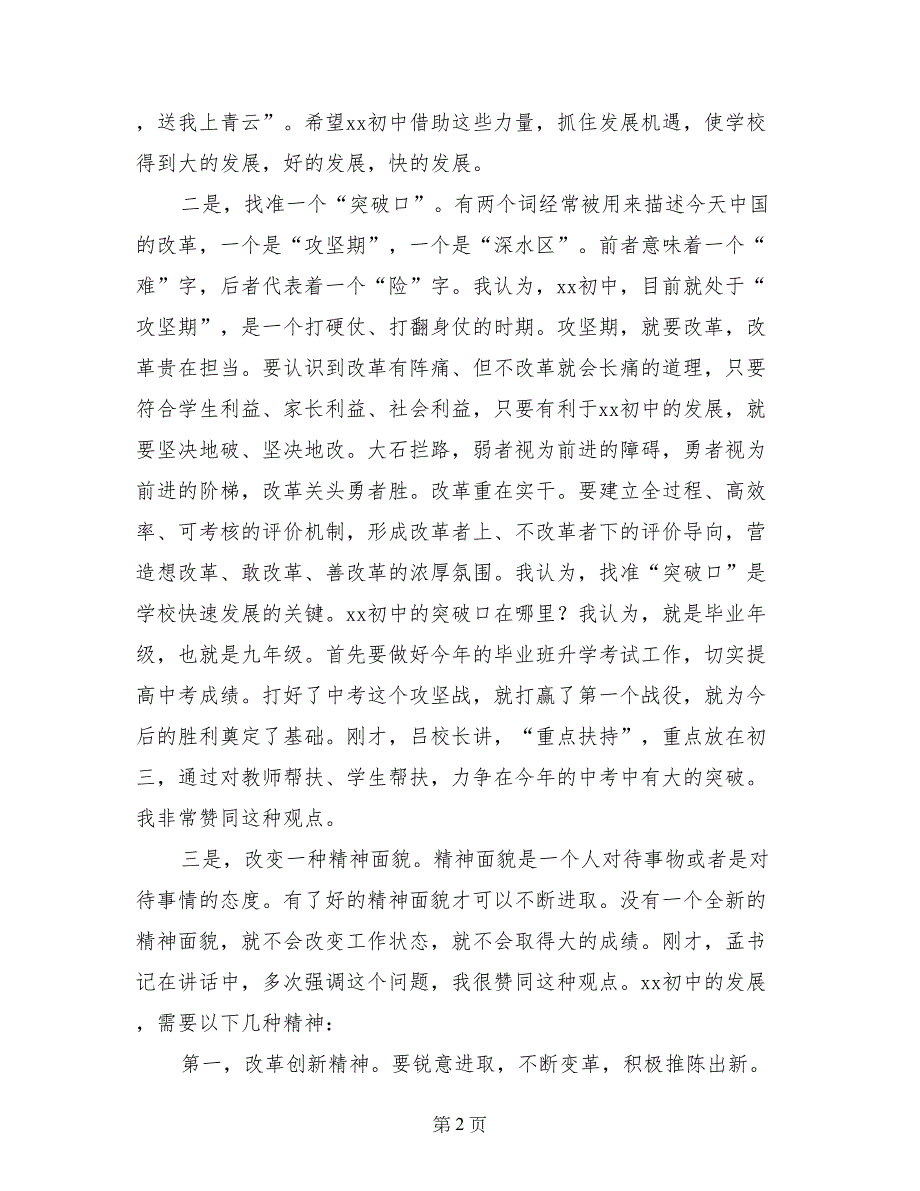 ，送我上青云”。希望xx初中借助这些力量，抓住发展机遇，使学校
得到大的发展，好的发展，快的发展。
二是，找准一个“突破口”。有两个词经常被用来描述今天中国
的改革，一个是“攻坚期”，一个是“深水区”。前者意味着一个“
难”字，后者代表着一个“险”字。我认为，xx初中，目前就处于“
攻坚期”，是一个打硬仗、打翻身仗的时期。攻坚期，就要改革，改
革贵在担当。要认识到改革有阵痛、但不改革就会长痛的道理，只要
符合学生利益、家长利益、社会利益，只要有利于xx初中的发展，就
要坚决地破、坚决地改。大石拦路，弱者视为前进的障碍，勇者视为
前进的阶梯，改革关头勇者胜。改革重在实干。要建立全过程、高效
率、可考核的评价机制，形成改革者上、不改革者下的评价导向，营
造想改革、敢改革、善改革的浓厚氛围。我认为，找准“突破口”是
学校快速发展的关键。xx初中的突破口在哪里？我认为，就是毕业年
级，也就是九年级。首先要做好今年的毕业班升学考试工作，切实提
高中考成绩。打好了中考这个攻坚战，就打赢了第一个战役，就为今
后的胜利奠定了基础。刚才，吕校长讲，“重点扶持”，重点放在初
三，通过对教师帮扶、学生帮扶，力争在今年的中考中有大的突破。
我非常赞同这种观点。
三是，改变一种精神面貌。精神面貌是一个人对待事物或者是对
待事情的态度。有了好的精神面貌才可以不断进取。没有一个全新的
精神面貌，就不会改变工作状态，就不会取得大的成绩。刚才，孟书
记在讲话中，多次强调这个问题，我很赞同这种观点。xx初中的发展
，需要以下几种精神：
第一，改革创新精神。要锐意进取，不断变革，积极推陈出新。
第 2 页